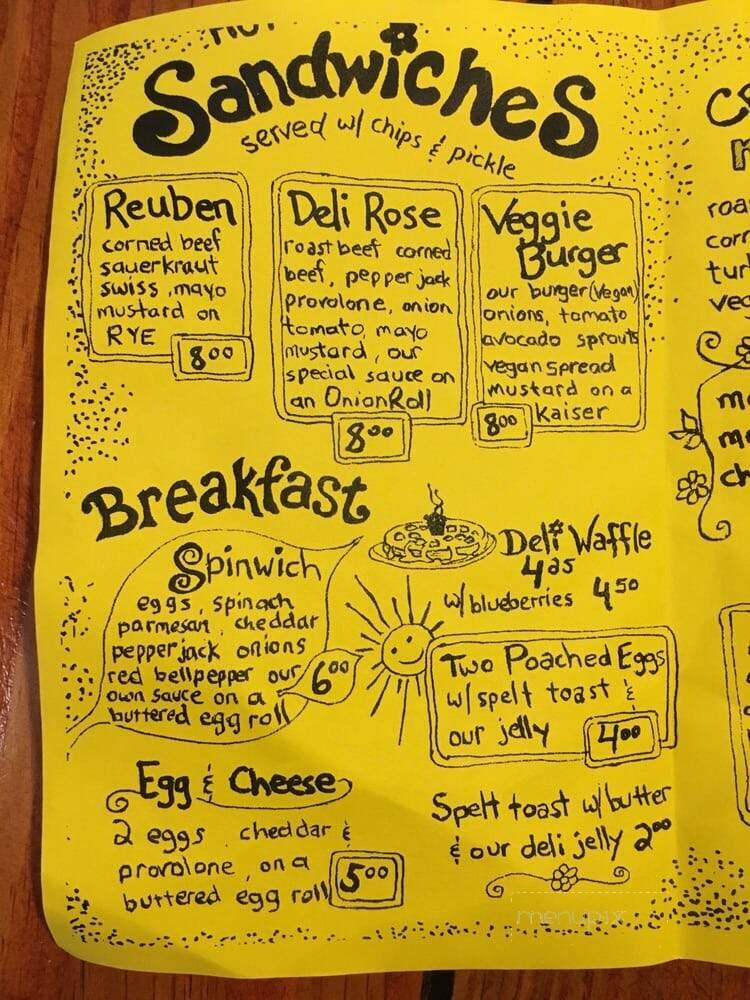 HOT
Sandwiches
served w/ chips & pickle
Reuben
corned beef
sauerkraut
swiss, mayo
mustard on
RYE
8.00
Deli Rose
roast beef corned
beef, pepper jack
provolone, onion
tomato, mayo
mustard, our
special sauce on
an Onion Roll
8.00
Veggie
Burger
our burger (vegan)
onions, tomato
avocado sprouts
vegan spread
mustard on a
kaiser
8.00
Breakfast
Spinwich
eggs, spinach
parmesan, cheddar
pepperjack onions
red bellpepper our
own sauce on a
buttered egg roll
6.00
Deli Waffle
4.25
w/ blueberries 4.50
Two Poached Eggs
w/ spelt toast &
our jelly
4.00
Egg & Cheese
2 eggs, cheddar &
provolone, on a
buttered egg roll
5.00
Spelt toast w/ butter
& our deli jelly 2.00
menupix